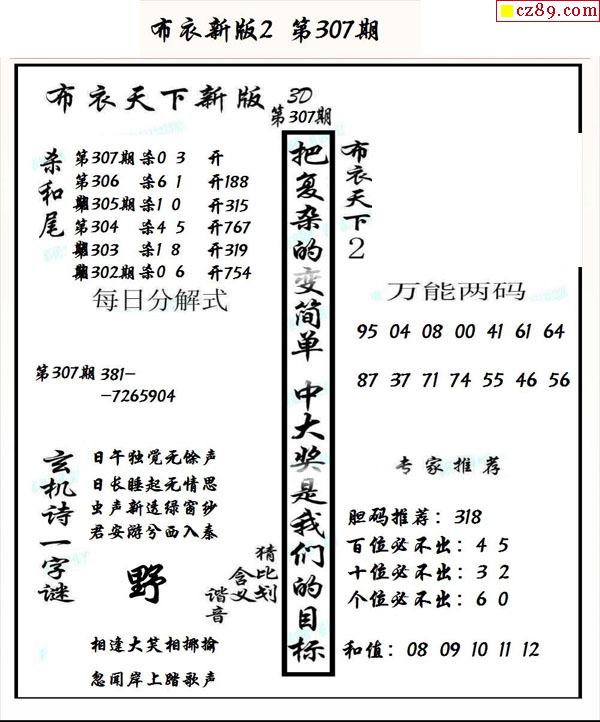 cz89.com
布衣新版2 第307期
布衣天下新版 3D
第307期
杀和尾
第307期 杀0 3 开
第306 杀6 1 开188
第305期 杀1 0 开315
第304 杀4 5 开767
第303 杀1 8 开319
第302期 杀0 6 开754
每日分解式
第307期 381-
-7265904
玄机诗一字谜
日午独觉无馀声
日长睡起无情思
虫声新透绿窗纱
君安游兮西入秦
野
猜比划
含义
谐音
相逢大笑相揶揄
忽闻岸上踏歌声
把复杂的变简单 中大奖是我们的目标
布衣天下2
万能两码
95 04 08 00 41 61 64
87 37 71 74 55 46 56
专家推荐
胆码推荐：318
百位必不出：4 5
十位必不出：3 2
个位必不出：6 0
和值：08 09 10 11 12